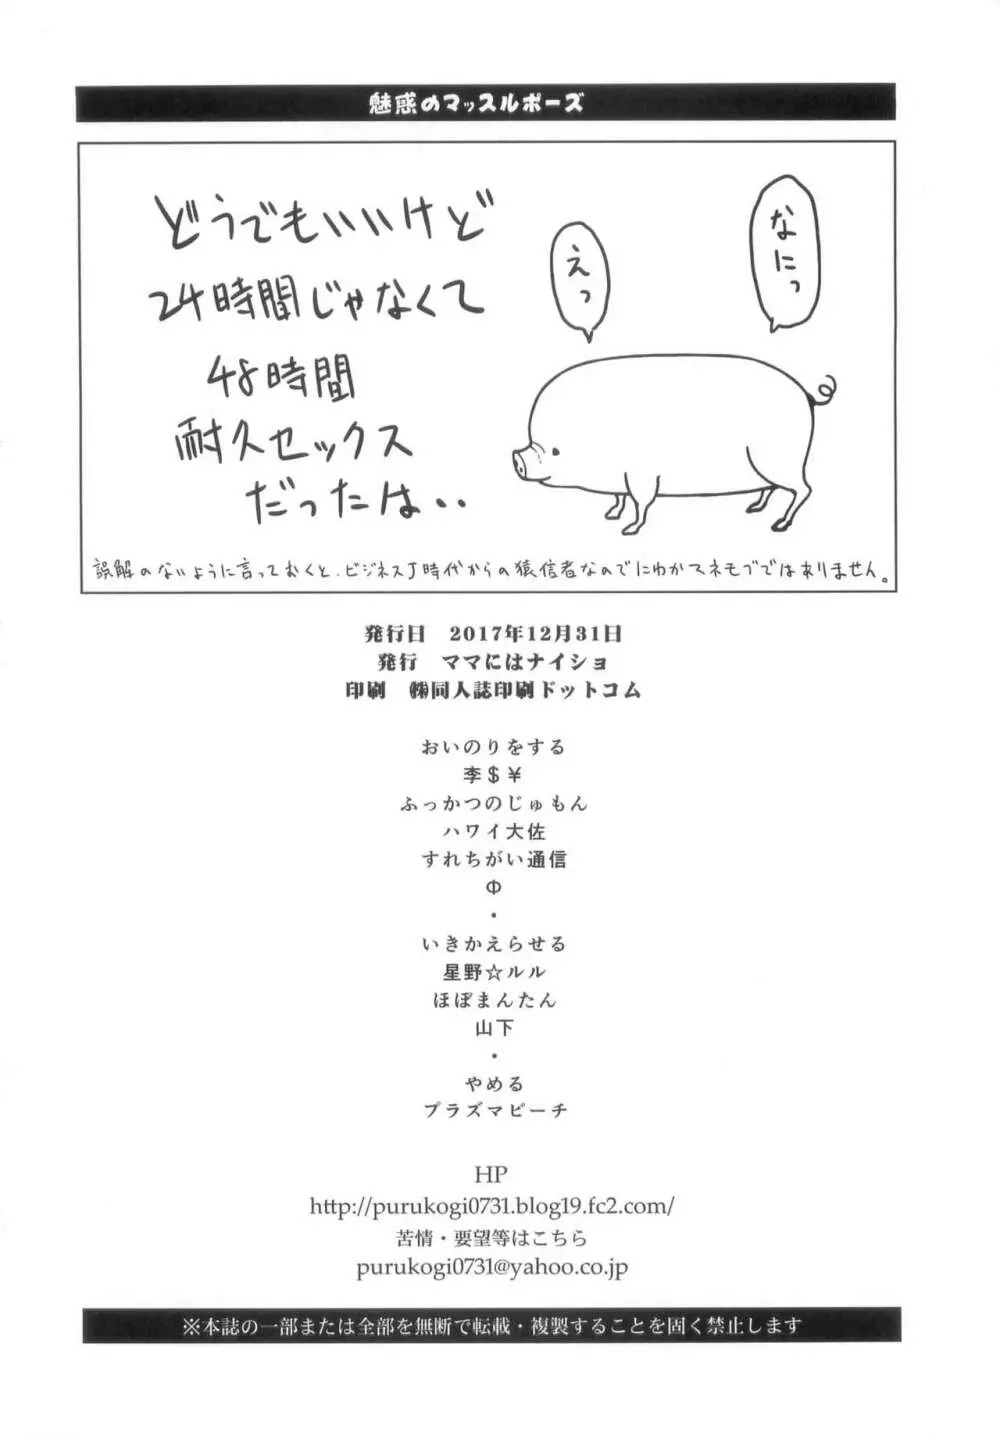 魅惑のマッスルポーズ
どうでもいいけど
24時間じゃなくて
48時間
耐久セックス
だったは・・
なにっ
えっ
誤解のないように言っておくと、ビジネスJ時代からの猿信者なのでにわかマネモブではありません。
発行日 2017年12月31日
発行 ママにはナイショ
印刷 ㈱同人誌印刷ドットコム
おいのりをする
李＄￥
ふっかつのじゅもん
ハワイ大佐
すれちがい通信
Φ
・
いきかえらせる
星野☆ルル
ほぼまんたん
山下
・
やめる
プラズマピーチ
HP
http://purukogi0731.blog19.fc2.com/
苦情・要望等はこちら
purukogi0731@yahoo.co.jp
※本誌の一部または全部を無断で転載・複製することを固く禁止します